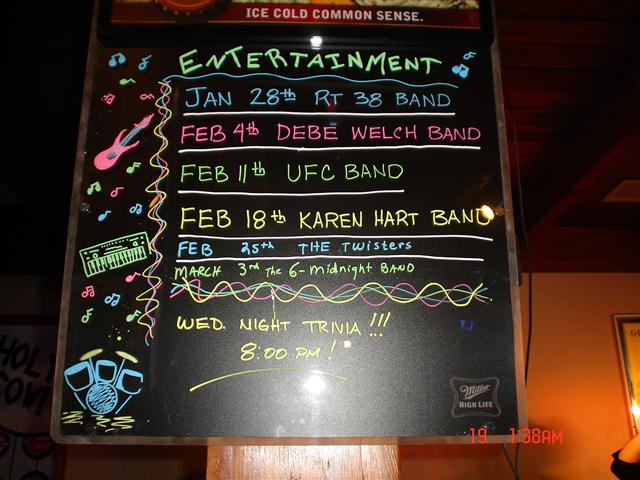 ICE COLD COMMON SENSE.
ENTERTAINMENT
JAN 28th RT 38 BAND
FEB 4th DEBE WELCH BAND
FEB 11th UFC BAND
FEB 18th KAREN HART BAND
FEB 25th THE TWISTERS
MARCH 3rd The 6-midnight BAND
WED. NIGHT TRNIA!!!
8:00 PM!
HOLY
COW!
Miller
HIGH LIFE
64
19 1:38AM